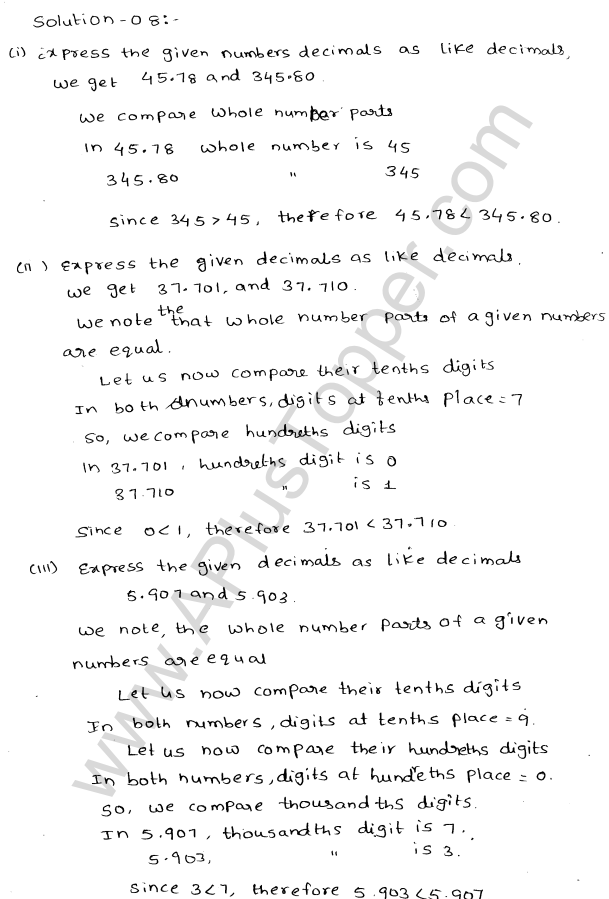 Solution-08:-
(i) Express the given numbers decimals as like decimals,
we get 45.78 and 345.80.
we compare whole number parts
In 45.78 whole number is 45
345.80 " 345
since 345 > 45, therefore 45.78 < 345.80.
(ii) Express the given decimals as like decimals.
we get 37.701, and 37.710.
We note the that whole number parts of a given numbers
are equal.
Let us now compare their tenths digits
In both numbers, digits at tenths place = 7
So, we compare hundreths digits
In 37.701, hundreths digit is 0
37.710 " is 1
Since 0<1, therefore 37.701 < 37.710
(iii) Express the given decimals as like decimals
5.907 and 5.903.
We note, the whole number parts of a given
numbers are equal
Let us now compare their tenths digits
In both numbers, digits at tenths place = 9.
Let us now compare their hundreths digits
In both numbers, digits at hundreths place = 0.
So, we compare thousandths digits.
In 5.907, thousandths digit is 7.
5.903, " is 3.
Since 3<7, therefore 5.903<5.907
www.APlusTopper.com